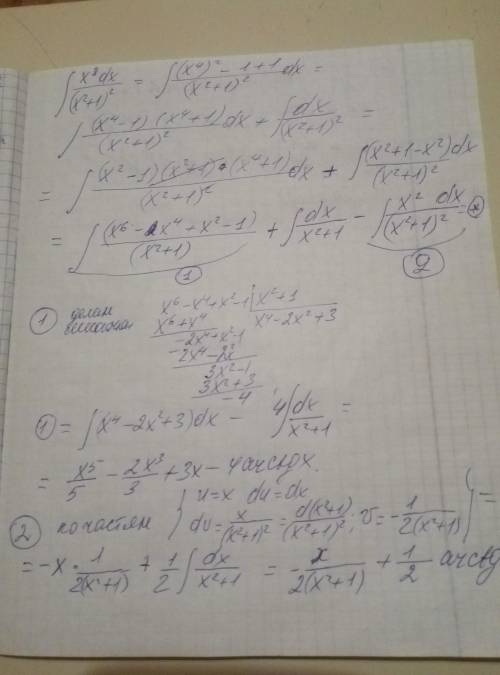 ∫ x⁸dx/(x²+1)² = ∫ ((x⁴)² - 1 + 1)/(x²+1)² dx =
∫ (x⁴-1)(x⁴+1)/(x²+1)² dx + ∫ dx/(x²+1)² =
= ∫ (x²-1)(x²+1)·(x⁴+1)/(x²+1)² dx + ∫ (x²+1-x²)dx/(x²+1)²
= ∫ (x⁶-x⁴+x²-1)/(x²+1) + ∫ dx/(x²+1) - ∫ x² dx/(x²+1)² =
① ②
① делим x⁶-x⁴+x²-1 | x²+1
x⁶+x⁴ x⁴-2x²+3
-2x⁴+x²-1
-2x⁴-2x²
3x²-1
3x²+3
-4
① = ∫(x⁴-2x²+3)dx - 4∫ dx/(x²+1) =
= x⁵/5 - 2x³/3 + 3x - 4arctgx.
② по частям { u=x du=dx
dv = x/(x²+1)² = d(x²+1)/(x²+1)²; v = -1/2(x²+1) } =
= -x·1/2(x²+1) + 1/2 ∫ dx/(x²+1) = -x/2(x²+1) + 1/2 arctg